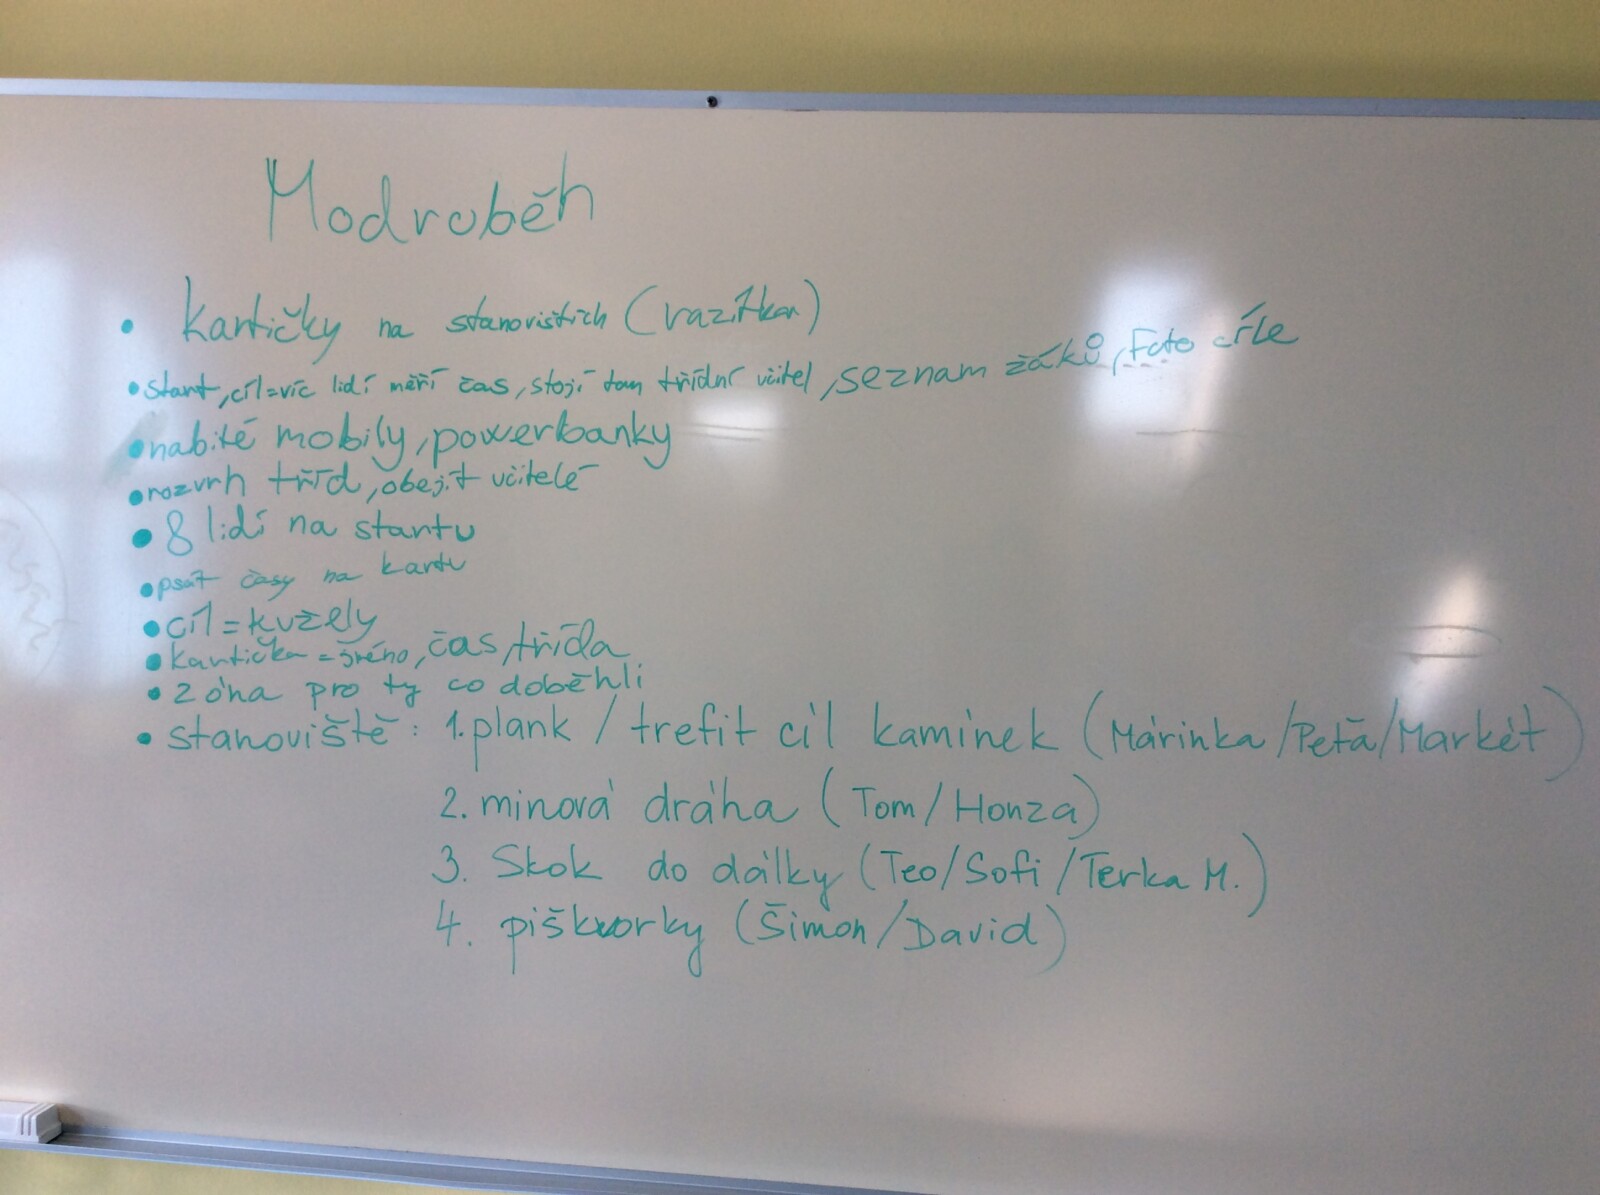 Modroběh
• Kartičky na stanovištích (razítka)
• start, cíl=víc lidí měří čas, stojí tam třídní učitel, seznam žáků, Foto cíle
• nabité mobily, powerbanky
• rozvrh tříd, obejít učitele
• 8 lidí na startu
• psát časy na kartu
• cíl = kužely
• kartička = jméno, čas, třída
• zóna pro ty co doběhli
• stanoviště: 1. plank / trefit cíl kamínek (Márinka/Peťa/Markét)
2. minová dráha (Tom/Honza)
3. Skok do dálky (Teo/Sofi/Terka M.)
4. piškvorky (Šimon/David)